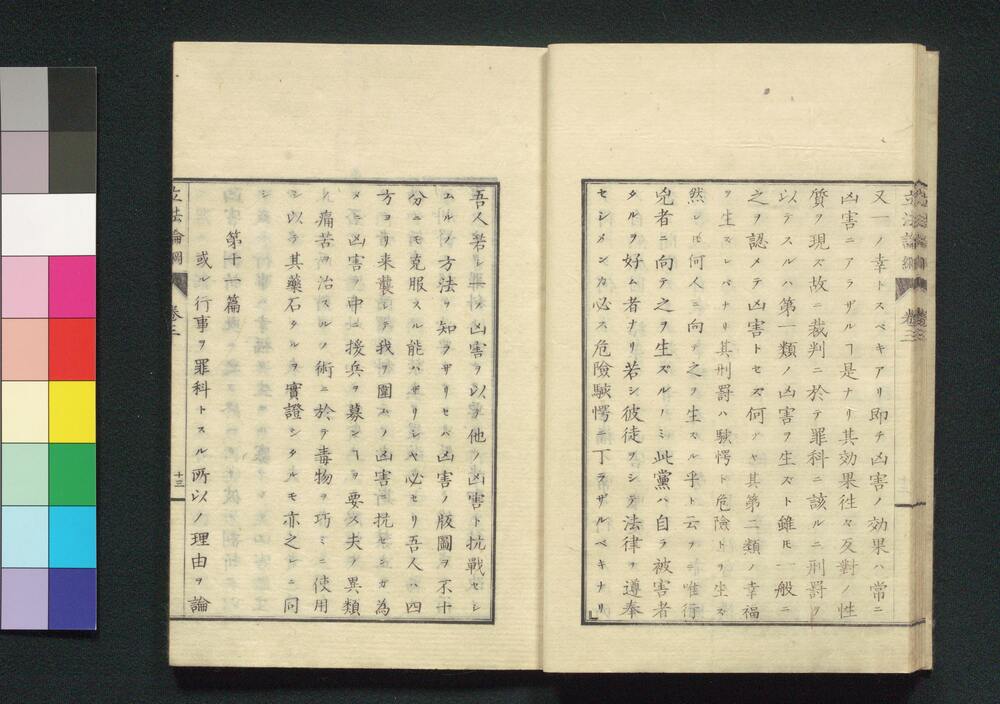 立法論綱 卷三
又一ノ幸トスベキアリ即チ凶害ノ効果ハ常ニ
凶害ニアラザルヿ是ナリ其効果往々反對ノ性
質ヲ現ズ故ニ裁判ニ於テ罪科ニ該ルニ刑罰ヲ
以テスルハ第一類ノ凶害ヲ生ズト雖𪜈一般ニ
之ヲ認メテ凶害トセズ何ゾヤ其第二類ノ幸福
ヲ生ズレバナリ其刑罰ハ駭愕ト危險トヲ生ズ
然レ𪜈何人ニ向テ之ヲ生ズル乎ト云フニ唯行
兇者ニ向テ之ヲ生ズルノミ此黨ハ自ラ被害者
タルヲ好ム者ナリ若シ彼徒ヲシテ法律ヲ遵奉
セシメンカ必ス危險駭愕ニ丁ラザルベキナリ
吾人若シ凶害ヲ以テ他ノ凶害ト抗戰セシ
ムルノ方法ヲ知ラザリセバ凶害ノ版圖ヲ不十
分ニモ克服スル能ハザリシヤ必セリ吾人ハ四
方ヨリ来襲シテ我ヲ圍ムノ凶害ニ抗センガ為
メ凶害ノ中ニ援兵ヲ募ンヿヲ要ス夫ノ異類
ノ痛苦ヲ治スルノ術ニ於テ毒物ヲ巧ミニ使用
シ以テ其藥石タルヲ實證シタルモ亦之レニ同
シ
第十一篇
或ル行事ヲ罪科トスル所以ノ理由ヲ論
立法論綱 卷三 十三